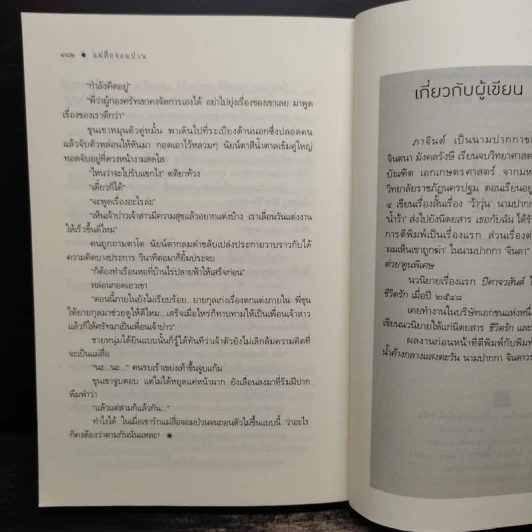 ๔๔๒ ● แม่สื่อจอมป่วน
"กำลังคิดอยู่"
"พี่ว่าผู้กองศรัทเขาคงจัดการเองได้ อย่าไปยุ่งเรื่องของเขาเลย มาพูด
เรื่องของเราดีกว่า"
ขุนเขาหมุนตัวคู่หมั้น พาเดินไปที่ระเบียงด้านนอกซึ่งปลอดคน
แล้วจับตัวหล่อนให้หันมา กอดเอาไว้หลวมๆ นัยน์ตาสีน้ำตาลเข้มคู่ใหญ่
ทอดจับอยู่ที่ดวงหน้างามสดใส
"ไหนว่าจะไปรับแขกไง" ตติยาท้วง
"เดี๋ยวก็ได้"
"จะพูดเรื่องอะไรล่ะ"
"เห็นเจ้าบ่าวเจ้าสาวมีความสุขแล้วอยากแต่งบ้าง เราเลื่อนวันแต่งงาน
ให้เร็วขึ้นดีไหม"
คนถูกถามตาโต นัยน์ตากลมดำขลับเปล่งประกายวาบราวกับได้
ความคิดบางประการ วินาทีต่อมาก็ยิ้มประจบ
"ก็ต้องทำเรือนหอที่บ้านไร่ปลายฟ้าให้เสร็จก่อน"
หล่อนกอดเอวเขา
"ตอนนี้ภายในยังไม่เรียบร้อย...ยายกูลเก่งเรื่องตกแต่งภายใน พี่ขุน
ให้ยายกูลมาช่วยดูให้ดีไหม...เสร็จเมื่อไหร่ก็ทาบทามให้เป็นเพื่อนเจ้าสาว
แล้วก็ให้ศรัทมาเป็นเพื่อนเจ้าบ่าว"
ชายหนุ่มได้ยินแบบนั้นก็รู้ได้ทันทีว่าเจ้าตัวยังไม่เลิกล้มความคิดที่
จะเป็นแม่สื่อ
"นะ...นะ..." คนรบเร้าเขย่งเท้าขึ้นจูบแก้ม
ขุนเขาจูบตอบ แต่ไม่ได้หยุดแค่หน้าผาก ยังเลื่อนลงมาที่ริมฝีปาก
พึมพำว่า
"แล้วแต่สามก็แล้วกัน..."
ทำไงได้ ในเมื่อเขารักแม่สื่อจอมป่วนจนถอนตัวไม่ขึ้นแบบนี้ ว่าอะไร
ก็คงต้องว่าตามกันนั่นแหละ! ●
เกี่ยวกับผู้เขียน
ภาจินต์ เป็นนามปากกาของ
จินตนา มังคลรังษี เรียนจบวิทยาศาสต
บัณฑิต เอกเกษตรศาสตร์ จากมห
วิทยาลัยราชภัฏนครปฐม ตอนเรียนอยู่
๔ เขียนเรื่องสั้นเรื่อง 'ว้าวุ่น' นามปาก
น้ำว้า' ส่งไปยังนิตยสาร เธอกับฉัน ได้รั
การตีพิมพ์เป็นเรื่องแรก ส่วนเรื่องต่
'ผมเห็นเขาถูกฆ่า' ในนามปากกา 'จินดา'
ต่วย'ตูนพิเศษ
นวนิยายเรื่องแรก ปีศาจวสันต์
ชีวิตรัก เมื่อปี ๒๕๔๘
เคยทำงานในบริษัทเอกชนแห่งหนึ่
เขียนนวนิยายให้แก่นิตยสาร ชีวิตรัก และ
ผลงานก่อนหน้าที่ตีพิมพ์กับพิมพ์
น้ำค้างกลางแสงตะวัน นามปากกา จินดาวร